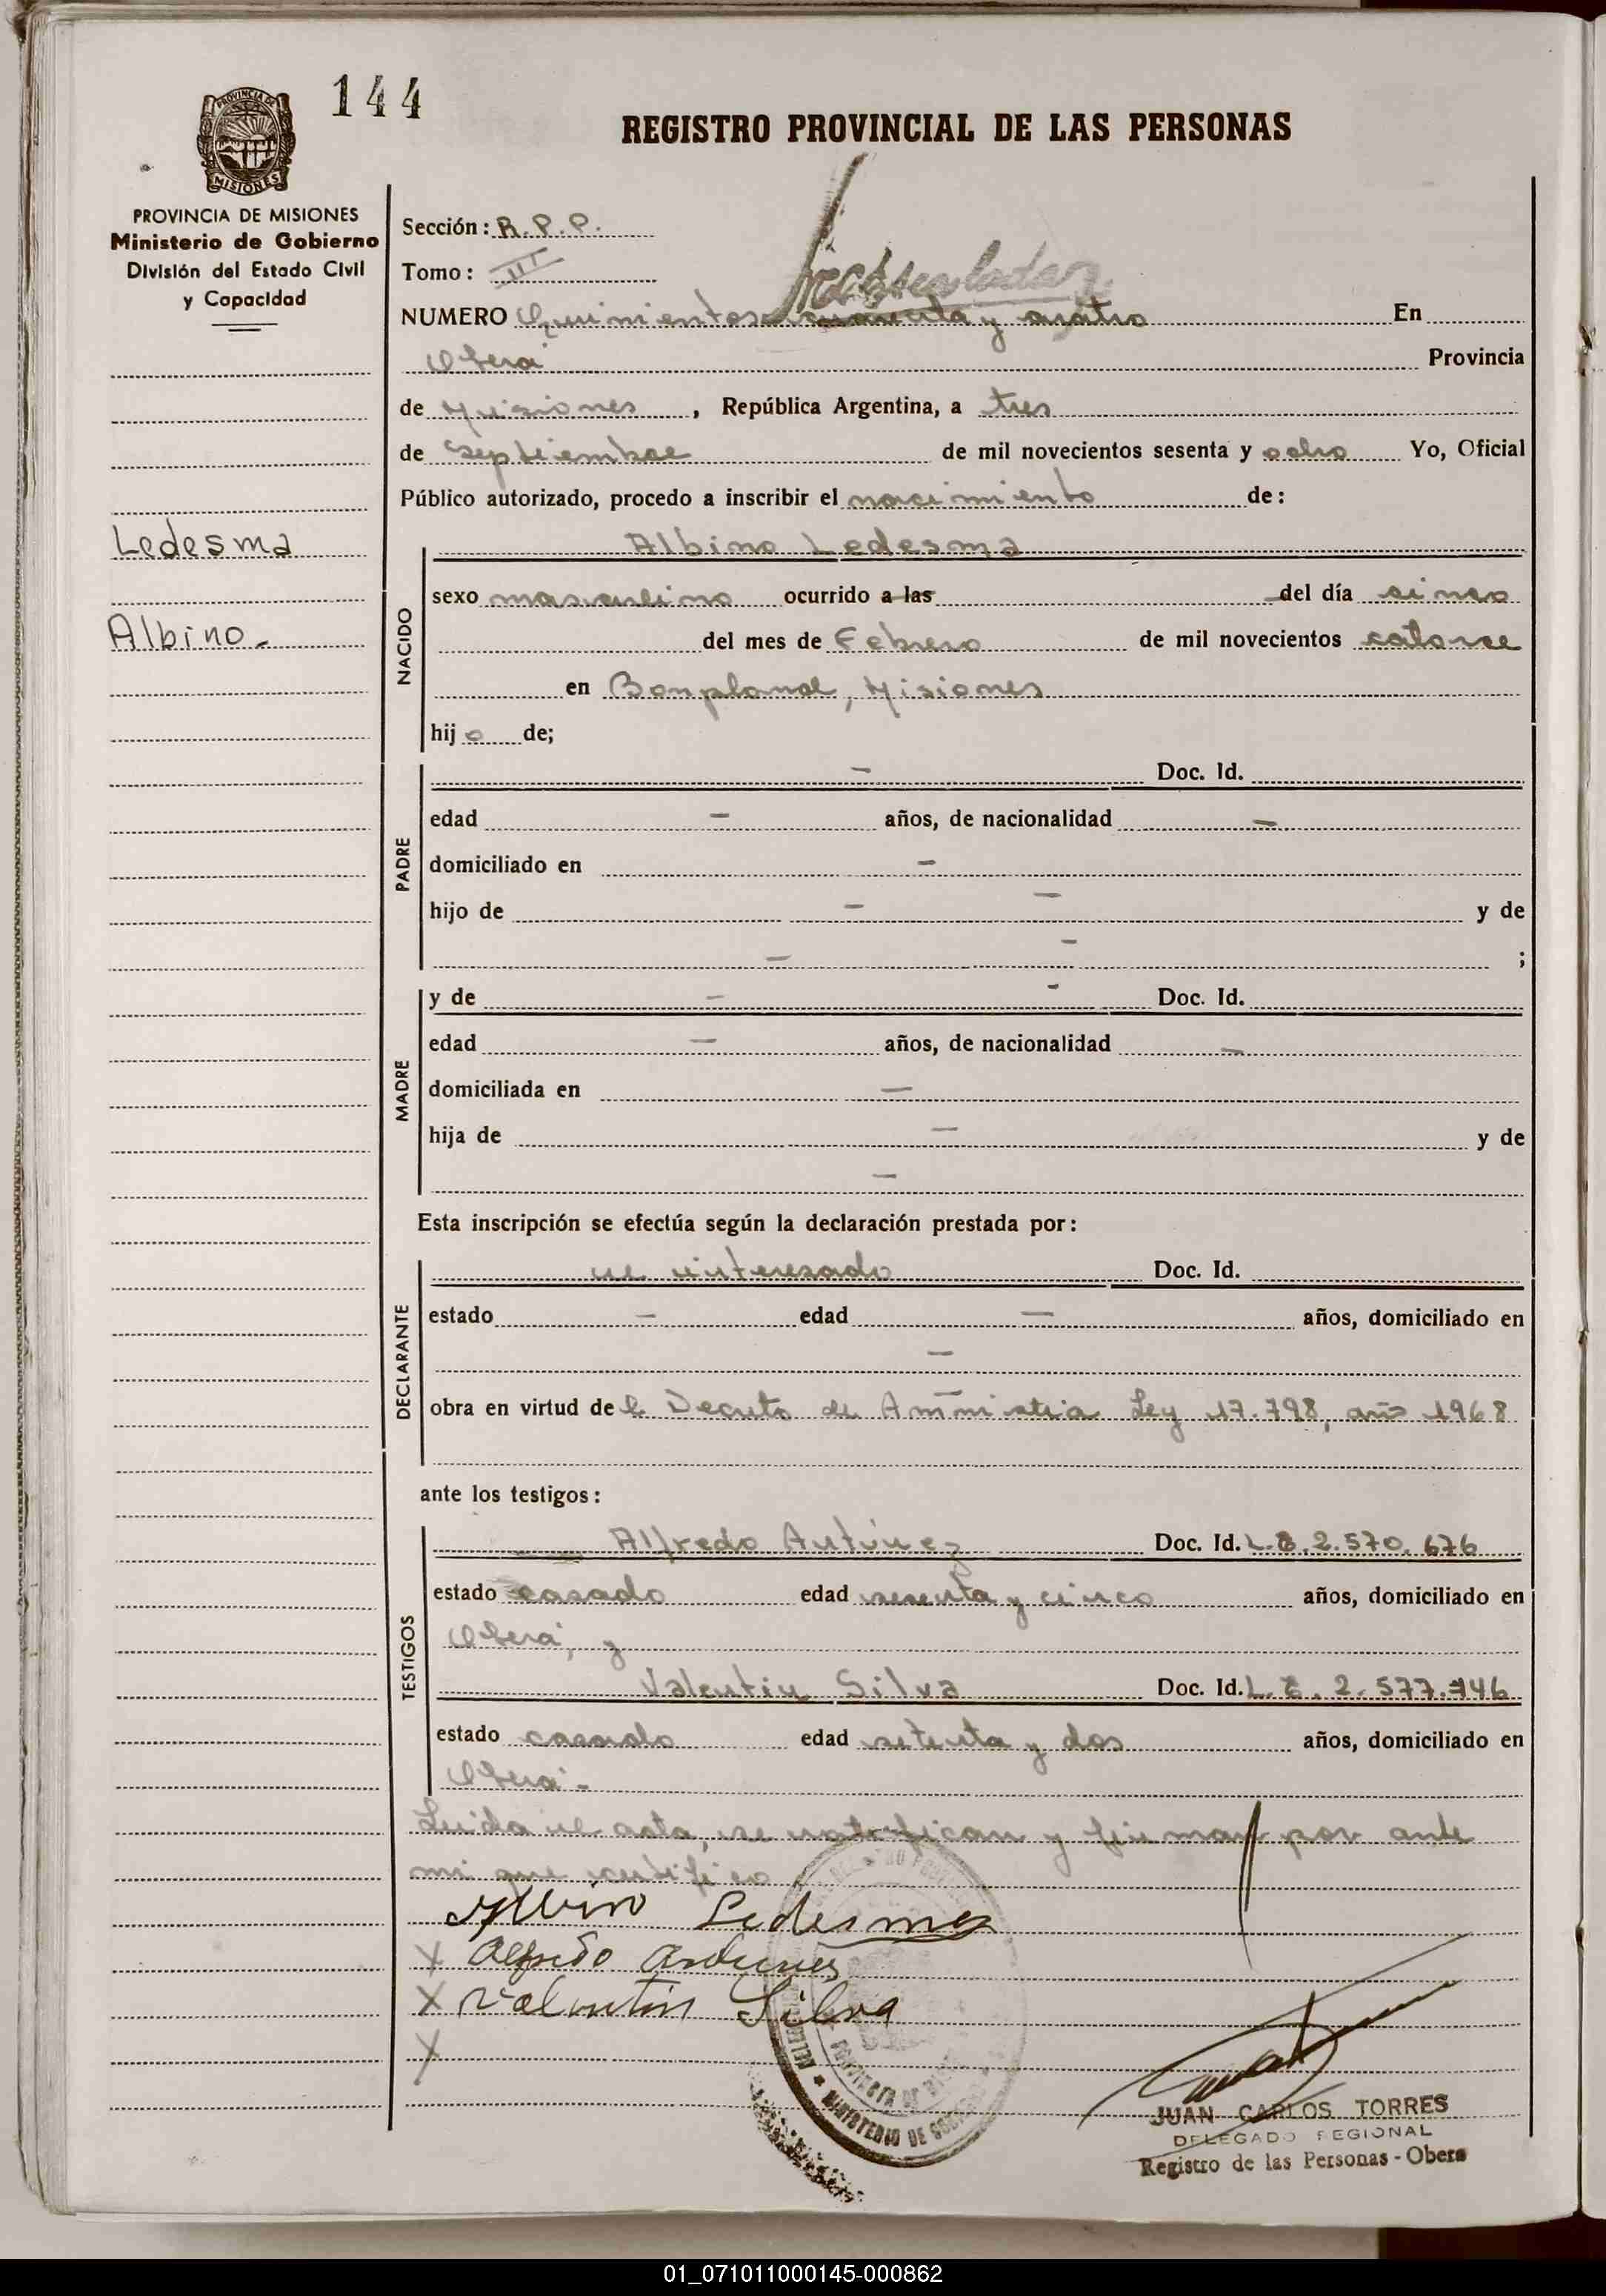 144
REGISTRO PROVINCIAL DE LAS PERSONAS
PROVINCIA DE MISIONES
PROVINCIA DE MISIONES
Ministerio de Gobierno
División del Estado Civil
y Capacidad
Ledesma
Albino.-
Sección: R.P.P.
Tomo: III
NUMERO Quinientos y cuatro En
Oberá Provincia
de Misiones, República Argentina, a tres
de Septiembre de mil novecientos sesenta y ocho Yo, Oficial
Público autorizado, procedo a inscribir el nacimiento de:
NACIDO
Albino Ledesma
sexo masculino ocurrido a las del día cinco
del mes de Febrero de mil novecientos catorce
en Bonpland, Misiones
hijo de;
PADRE
- Doc. Id.
edad - años, de nacionalidad -
domiciliado en -
hijo de - - y de
- - ;
MADRE
y de - - Doc. Id.
edad - años, de nacionalidad -
domiciliada en -
hija de - y de
-
Esta inscripción se efectúa según la declaración prestada por:
DECLARANTE
el interesado Doc. Id.
estado - edad - años, domiciliado en
-
obra en virtud de l Decreto de Amnistia Ley 17.798, año 1968
ante los testigos:
TESTIGOS
Alfredo Antúnez Doc. Id. L.E. 2.570.676
estado casado edad sesenta y cinco años, domiciliado en
Oberá, y
Valentin Silva Doc. Id. L.E. 2.577.746
estado casado edad setenta y dos años, domiciliado en
Oberá.-
Leida el acta, se ratifican y firman por ante
mi que certifico
Albino Ledesma
X Alfredo Antunes
X Valentin Silva
X
MINISTERIO DE GOBIERNO
JUAN CARLOS TORRES
DELEGADO REGIONAL
Registro de las Personas - Obera
01_071011000145-000862